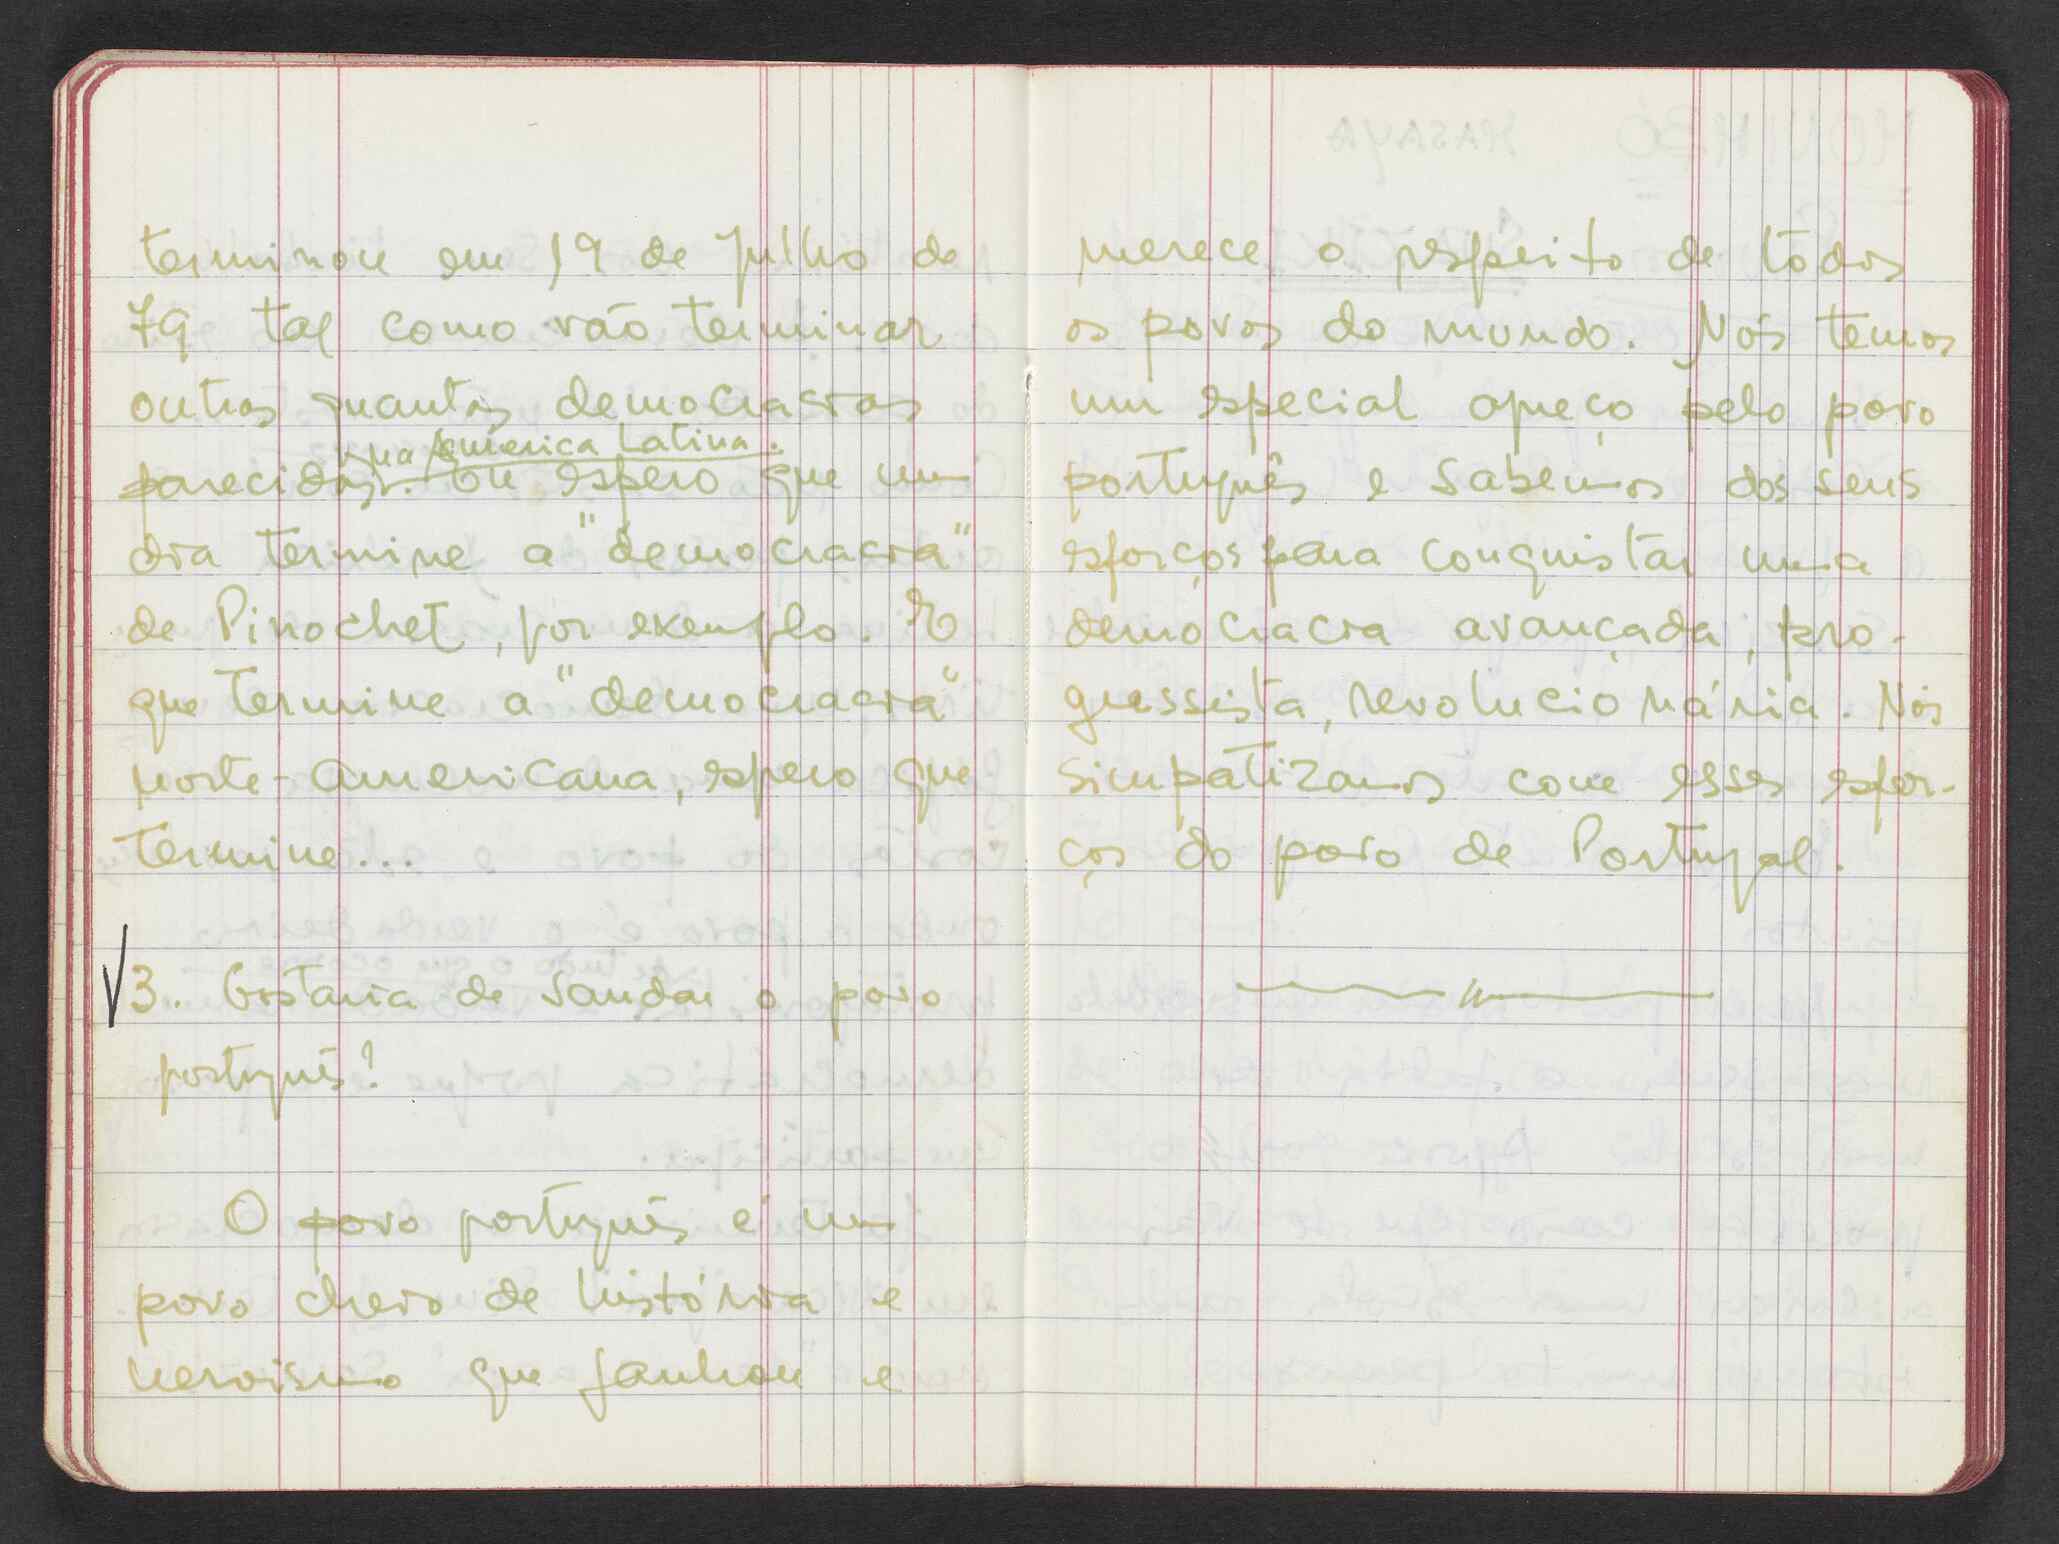 terminou em 19 de Julho de
79 tal como vão terminar
outras quantas democracias
na América Latina.
parecidas. Eu espero que um
dia termine a "democracia"
de Pinochet, por exemplo. E
que termine a "democracia"
norte-americana, espero que
termine...
3.. Gostaria de saudar o povo
português?
O povo português é um
povo cheio de história e
heroismo que ganhou e
merece o respeito de todos
os povos do mundo. Nós temos
um especial apreço pelo povo
português e sabemos dos seus
esforços para conquistar uma
democracia avançada, pro-
gressista, revolucionária. Nós
simpatizamos com esses esfor-
ços do povo de Portugal.